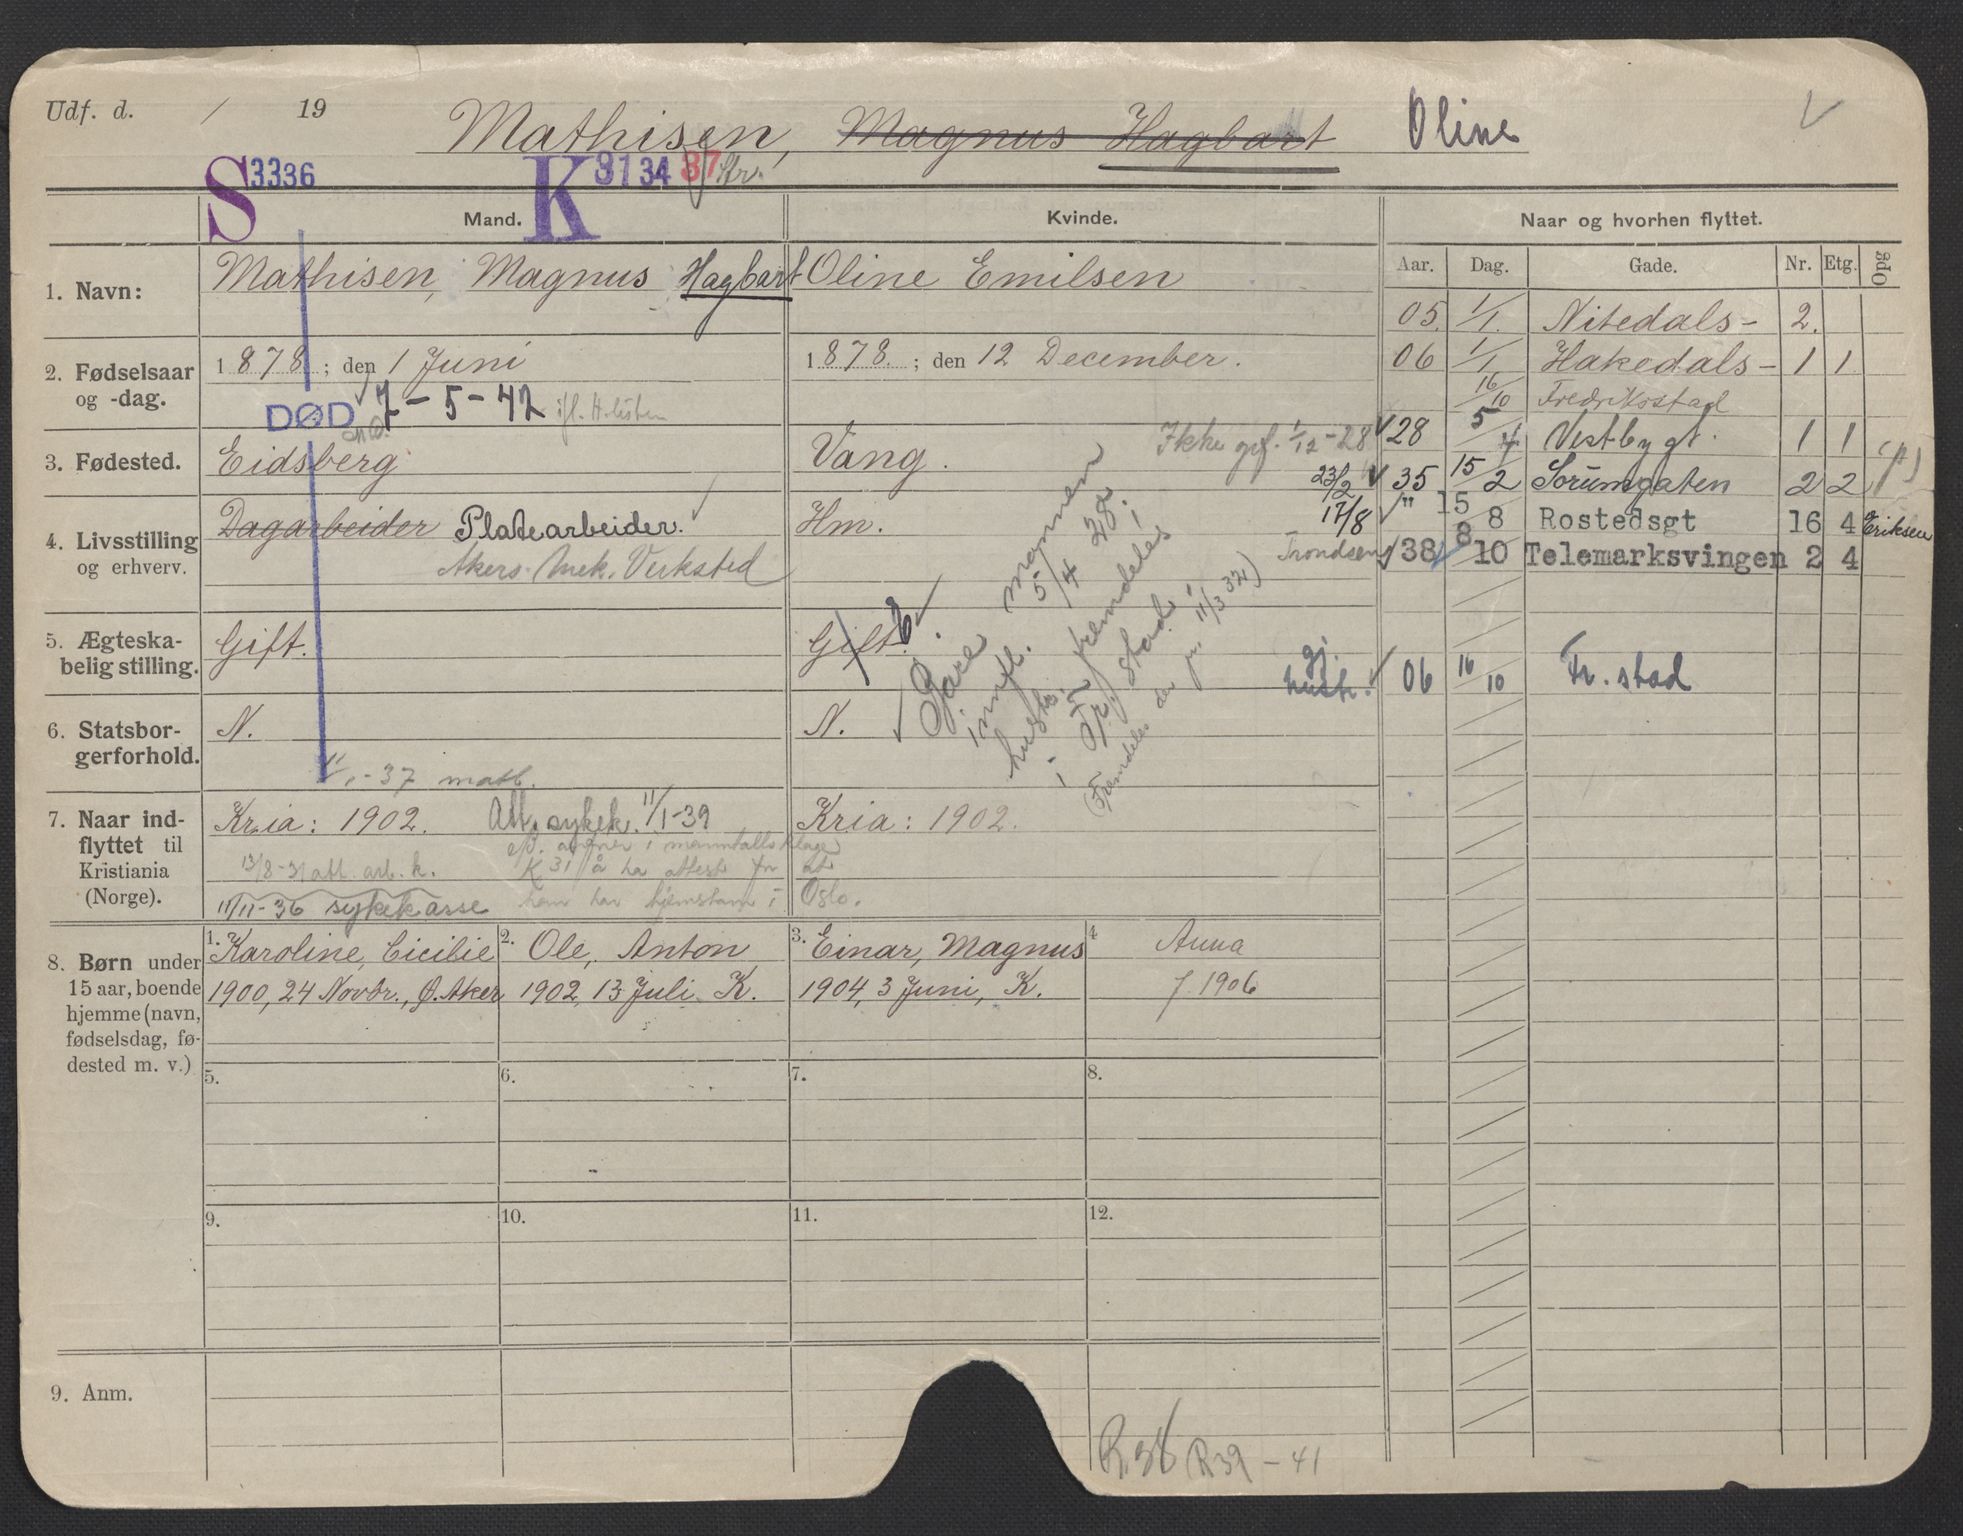 Udf. d. / 19
Mathisen, Magnus Hagbart Oline
S 3336 K 3134 37 Str.
Mand. Kvinde. Naar og hvorhen flyttet.
Aar. Dag. Gade. Nr. Etg. Opg
1. Navn: Mathisen, Magnus Hagbart Oline Emilsen
05. 1/1. Nitedals- 2.
2. Fødselsaar og -dag. 1878; den 1 Juni 1878.; den 12 December.
06 1/1 Hakedals- 1 1
16/10 Fredrikstad
DØD 7-5-42 ifl. H.listen
28 5/4 Vestbygt. 1 1
Ikke gf. 1/12-28
3. Fødested. Eidsberg Vang.
23/2 35 15/2 Sorumgaten 2 2
17/8 " 15/8 Rostedsgt 16 4 Eriksen
4. Livsstilling og erhverv. Dagarbeider Platearbeider. Hm.
Akers. Mek. Verksted
Trondsen 38 8/10 Telemarksvingen 2 4
5. Ægteska-
belig stilling. Gift. Gift. 6
Bare mannen
innfl. 5/4 28.
hustr. fremdeles
i Fr.stad
(Fremdeles der pr. 11/3 32)
gj.
hustr. 06 16/10 Fr. stad
6. Statsbor-
gerforhold. N. N.
11/1-37 matl.
7. Naar ind-
flyttet til
Kristiania
(Norge). Kria: 1902. Att. sykek. 11/1-39 Kria: 1902.
13/8-31 att. arb. k.
11/11-36 sykekasse
K 31 å ha attest for at
han har hjemstavn i Oslo.
8. Børn under
15 aar, boende
hjemme (navn,
fødselsdag, fø-
dested m. v.)
1. Karoline, Cicilie 2. Ole, Anton 3. Einar, Magnus 4 Anna
1900, 24 Novbr., Ø. Aker 1902, 13 Juli K. 1904, 3 Juni, K. f. 1906
5. 6. 7. 8.
9. 10. 11. 12.
9. Anm.
R.38 R39-41